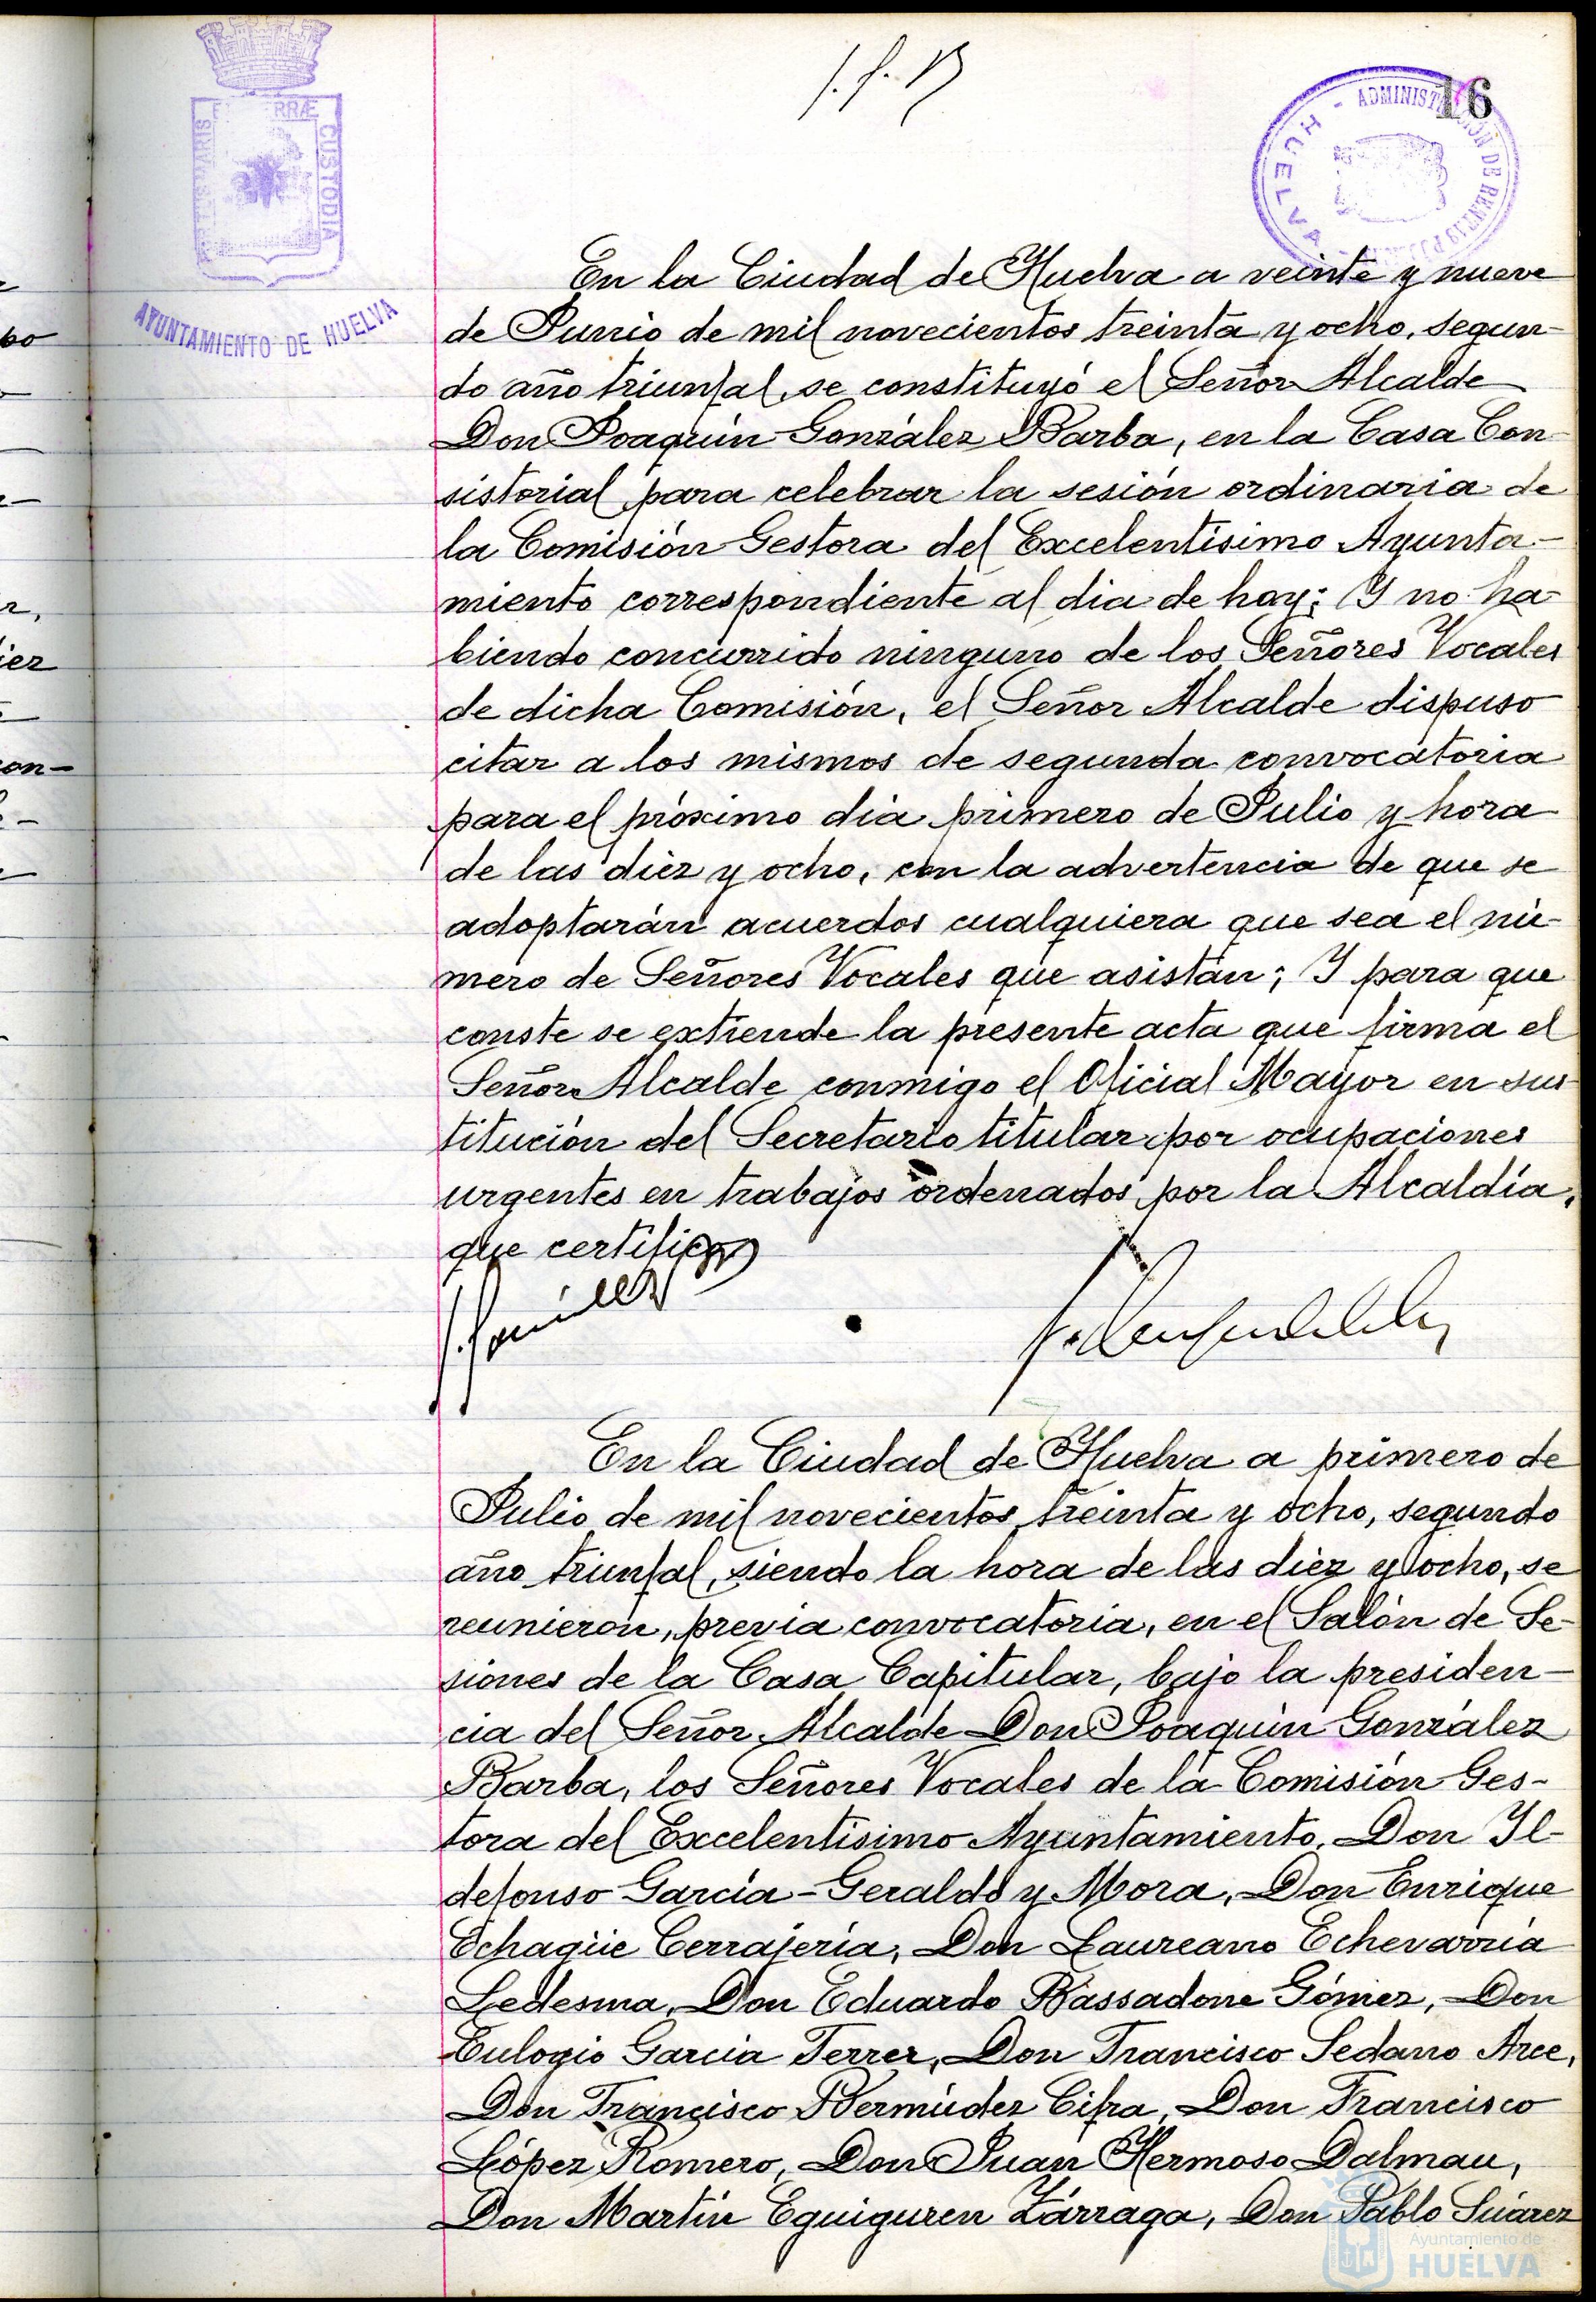 16
AYUNTAMIENTO DE HUELVA
En la Ciudad de Huelva a veinte y nueve
de Junio de mil novecientos treinta y ocho, segun-
do año triunfal, se constituyó el Señor Alcalde
Don Joaquín González Barba, en la Casa Con-
sistorial para celebrar la sesión ordinaria de
la Comisión Gestora del Excelentísimo Ayunta-
miento correspondiente al dia de hoy; Y no ha-
biendo concurrido ninguno de los Señores Vocales
de dicha Comisión, el Señor Alcalde dispuso
citar a los mismos de segunda convocatoria
para el próximo día primero de Julio y hora
de las diez y ocho, con la advertencia de que se
adoptarán acuerdos cualquiera que sea el nú-
mero de Señores Vocales que asistan; Y para que
conste se extiende la presente acta que firma el
Señor Alcalde conmigo el Oficial Mayor en sus-
titución del Secretario titular por ocupaciones
urgentes en trabajos ordenados por la Alcaldía,
que certifico
En la Ciudad de Huelva a primero de
Julio de mil novecientos treinta y ocho, segundo
año triunfal, siendo la hora de las diez y ocho, se
reunieron, previa convocatoria, en el Salón de Se-
siones de la Casa Capitular, bajo la presiden-
cia del Señor Alcalde Don Joaquín González
Barba, los Señores Vocales de la Comisión Ges-
tora del Excelentísimo Ayuntamiento, Don Il-
defonso García-Geraldo y Mora, Don Enrique
Echagüe Cerrajería, Don Laureano Echevarría
Ledesma, Don Eduardo Bassadone Gómez, Don
Eulogio García Ferrer, Don Francisco Sedano Arce,
Don Francisco Bermúdez Cifra, Don Francisco
López Romero, Don Juan Hermoso Dalmau,
Don Martín Eguiguren Zárraga, Don Pablo Suárez
Ayuntamiento de
HUELVA